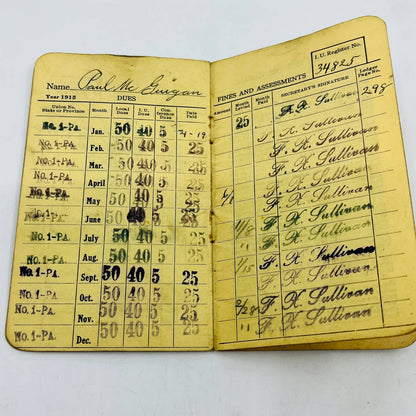 Name Paul Mc Guigan
Year 1915 DUES
Union No. State or Province Month Local Dues I. U. Dues Con- ference Dues Date Paid
No. 1-PA. Jan. 50 40 5
No. 1-PA. Feb. 50 40 5 25
No. 1-PA. Mar. 50 40 5 25
No. 1-PA. April 50 40 5 25
No. 1-PA. May 50 40 5 25
No. 1-PA. June 40 5 25
No. 1-PA. July 50 40 5 25
No. 1-PA. Aug. 50 40 5 25
No. 1-PA. Sept. 50 40 5 25
No. 1-PA. Oct. 50 40 5 25
No. 1-PA. Nov. 50 40 5 25
No. 1-PA. Dec. 50 40 5 25
I. U. Register No.
34825
FINES AND ASSESSMENTS
Amount Month Levied Month Paid SECRETARY'S SIGNATURE Ledger Page No.
25 F. X. Sullivan 298
F. X. Sullivan
F. X. Sullivan
F. X. Sullivan
F. X. Sullivan
F. X. Sullivan
F. X. Sullivan
F. X. Sullivan
F. X. Sullivan
F. X. Sullivan
F. X. Sullivan
F. X. Sullivan